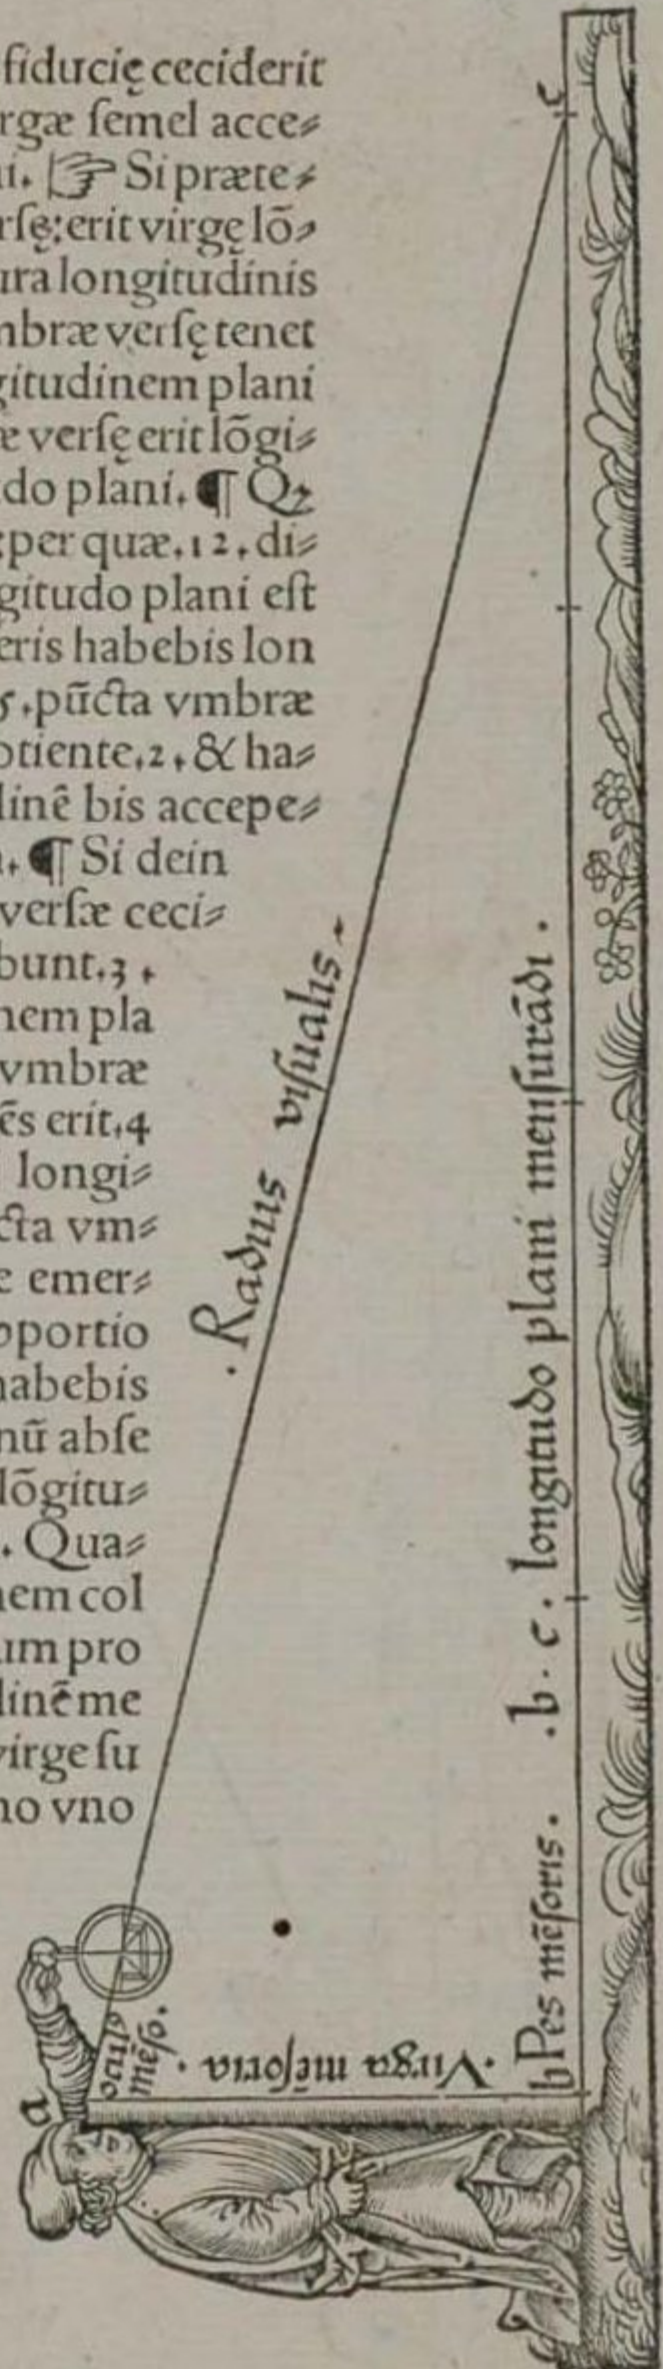 fiducię ceciderit
rgæ ſemel acce⸗
i. ☞ Si præte⸗
rſę: erit virgę lō⸗
ura longitudinis
mbræ verſę tenet
gitudinem plani
æ verſę erit lōgi⸗
do plani. ¶ Qꝫ
: per quæ .12. di⸗
gitudo plani eſt
eris habebis lon
5. pūcta vmbræ
otiente .2. & ha⸗
dinē bis accepe⸗
. ¶ Si dein
verſæ ceci⸗
bunt .3.
nem pla
vmbræ
ēs erit .4
longi⸗
cta vm⸗
e emer⸗
oportio
habebis
nū abſe
lōgitu⸗
. Qua⸗
nem col
um pro
dinē me
virge ſu
no vno
c
. Radius viſualis .
. b . c . longitudo plani menſurādi .
b Pes mēſoris .
. Virga mēſoria .
oculꝰ
mēſo.
a